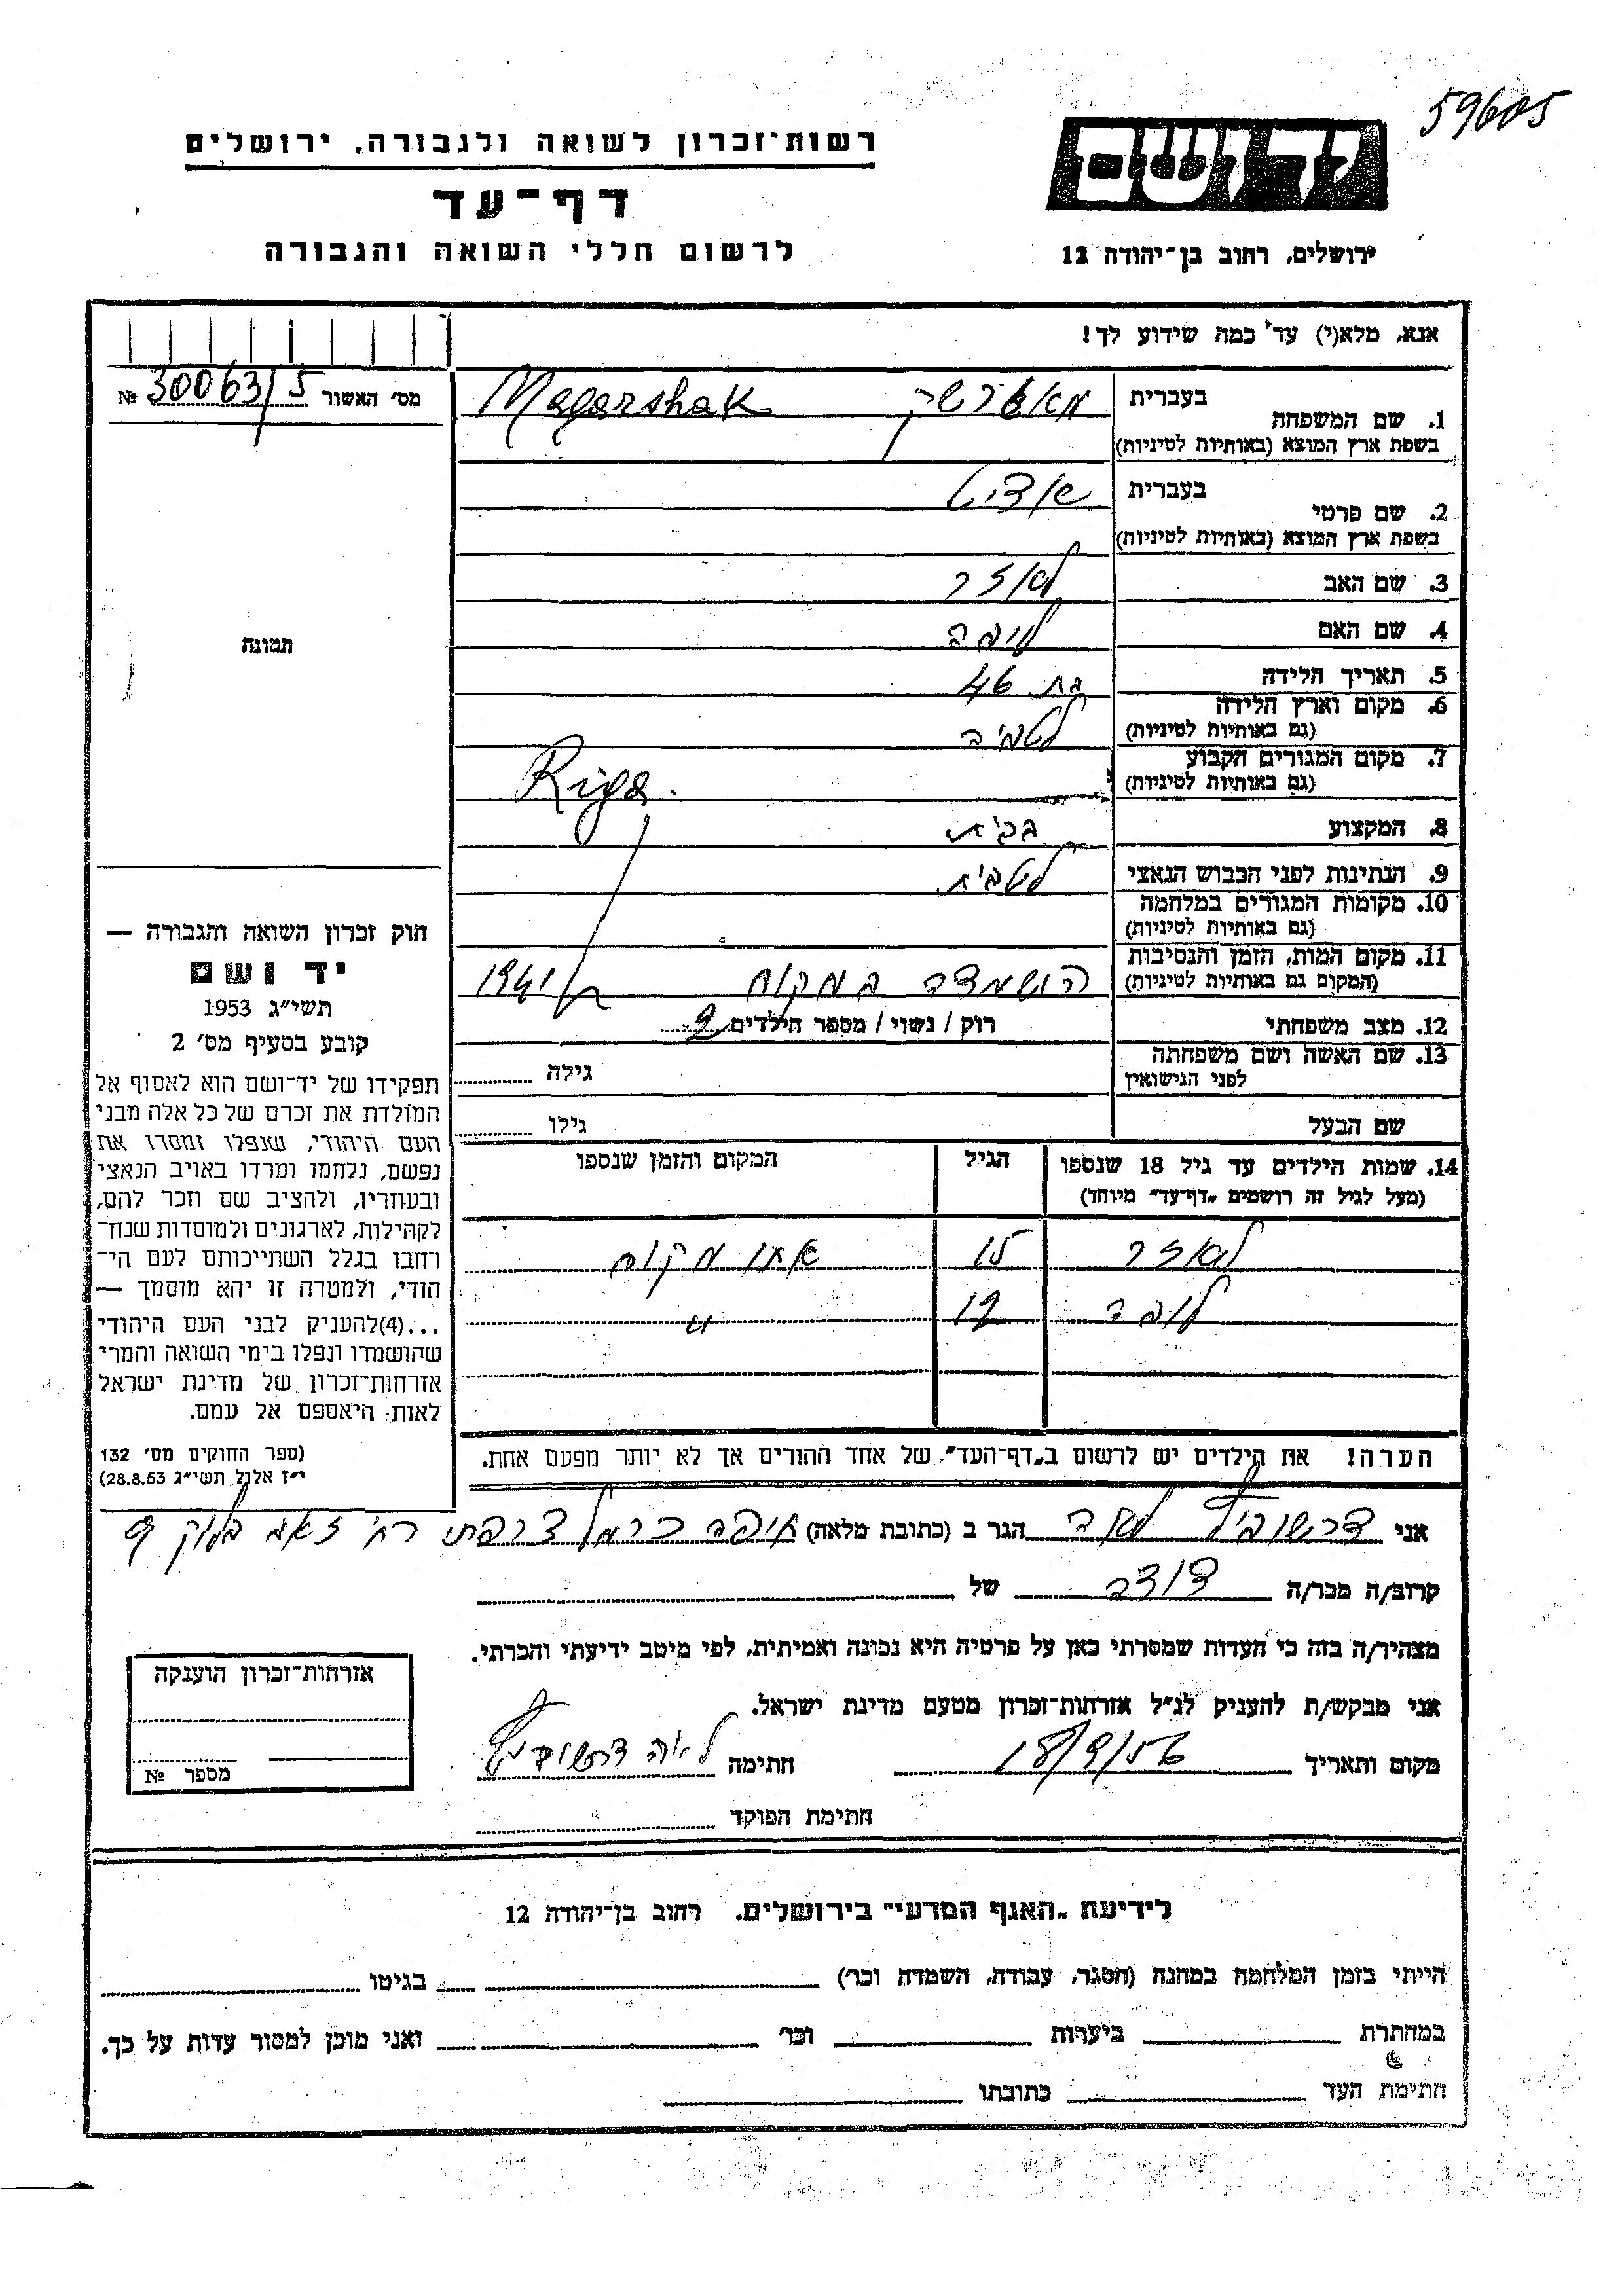 59605
יד ושם
רשות־זכרון לשואה ולגבורה, ירושלים
דף־עד
לרשום חללי השואה והגבורה
ירושלים, רחוב בן־יהודה 12
אנא, מלא(י) עד כמה שידוע לך!
מס' האשור № 30063/5
1. שם המשפחה בעברית Magarshak
בשפת ארץ המוצא (באותיות לטיניות)
2. שם פרטי בעברית
בשפת ארץ המוצא (באותיות לטיניות)
3. שם האב לאזר
4. שם האם
תמונה
5. תאריך הלידה בת 46
6. מקום וארץ הלידה
(גם באותיות לטיניות) לטביה
7. מקום המגורים הקבוע
(גם באותיות לטיניות) Riga.
8. המקצוע
9. הנתינות לפני הכבוש הנאצי לטבית
10. מקומות המגורים במלחמה
(גם באותיות לטיניות)
11. מקום המות, הזמן והנסיבות
(המקום גם באותיות לטיניות) הושמדה במקום ב/1941
12. מצב משפחתי רוק / נשוי / מספר הילדים 2
13. שם האשה ושם משפחתה
לפני הנישואין גילה
שם הבעל גילו
14. שמות הילדים עד גיל 18 שנספו הגיל המקום והזמן שנספו
(מעל לגיל זה רושמים „דף־עד” מיוחד)
לאזר 15 אתו מקום
12 "
הערה! את הילדים יש לרשום ב„דף־העד” של אחד ההורים אך לא יותר מפעם אחת.
חוק זכרון השואה והגבורה —
יד ושם
תשי"ג 1953
קובע בסעיף מס' 2
תפקידו של יד־ושם הוא לאסוף אל
המולדת את זכרם של כל אלה מבני
העם היהודי, שנפלו ומסרו את
נפשם, נלחמו ומרדו באויב הנאצי
ובעוזריו, ולהציב שם וזכר להם,
לקהילות, לארגונים ולמוסדות שנח־
רבו בגלל השתייכותם לעם הי־
הודי, ולמטרה זו יהא מוסמך —
...(4)להעניק לבני העם היהודי
שהושמדו ונפלו בימי השואה והמרי
אזרחות־זכרון של מדינת ישראל
לאות: היאספם אל עמם.
(ספר החוקים מס' 132
י"ז אלול תשי"ג 28.8.53)
אני לאה הגר ב (כתובת מלאה) חיפה כרמל צרפתי רח' זאב בלוק 9
קרוב/ה מכר/ה דודה של
מצהיר/ה בזה כי העדות שמסרתי כאן על פרטיה היא נכונה ואמיתית, לפי מיטב ידיעתי והכרתי.
אני מבקש/ת להעניק לנ"ל אזרחות־זכרון מטעם מדינת ישראל.
מקום ותאריך 18/9/56 חתימה לאה
חתימת הפוקד
אזרחות־זכרון הוענקה
מספר №
לידיעת „האגף המדעי” בירושלים. רחוב בן־יהודה 12
הייתי בזמן המלחמה במחנה (הסגר, עבודה, השמדה וכר') בגיטו
במחתרת ביערות וכר' ואני מוכן למסור עדות על כך.
חתימת העד כתובתו